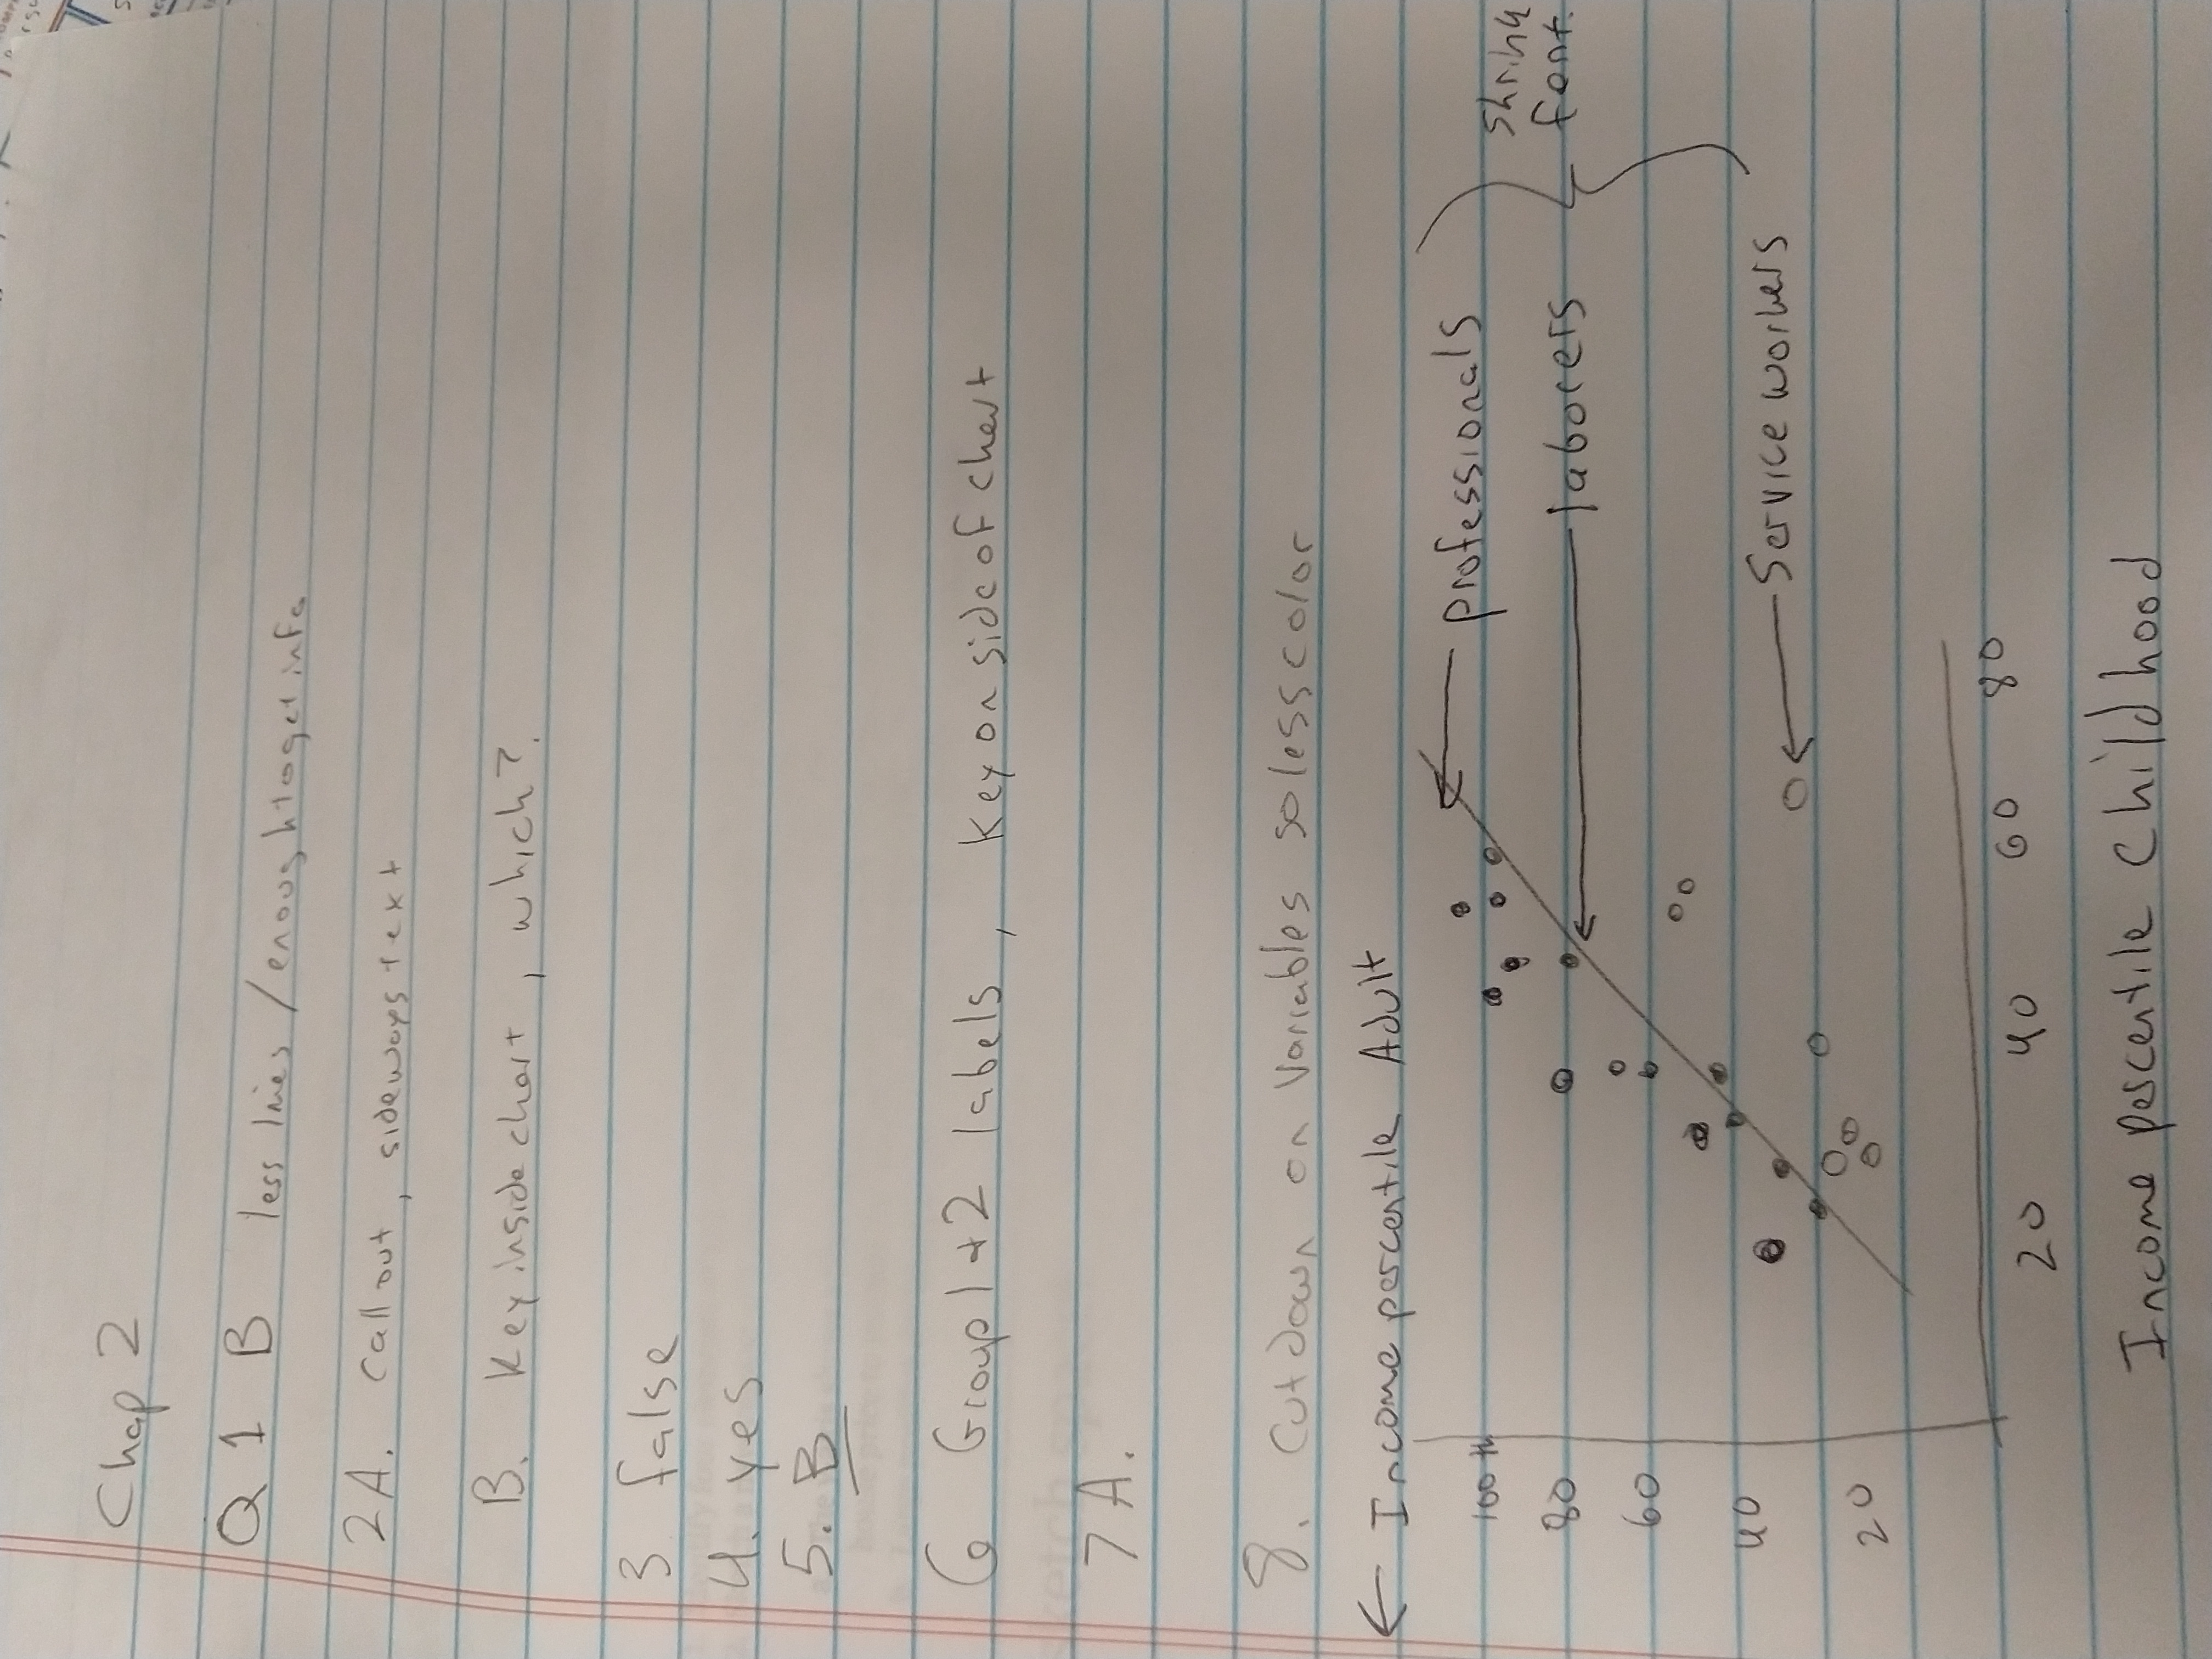 Chap 2
Q 1 B less lines / enough to get info
2A. Call out, sideways text
B. Key inside chart, which?
3 false
4. yes
5. B
6 Group 1 + 2 labels, Key on side of chart
7 A.
8. Cut down on Variables so less color
← Income percentile Adult
100 th
80
60
40
20
professionals
laborers
Service workers
shrink
font.
20 40 60 80
Income percentile Childhood